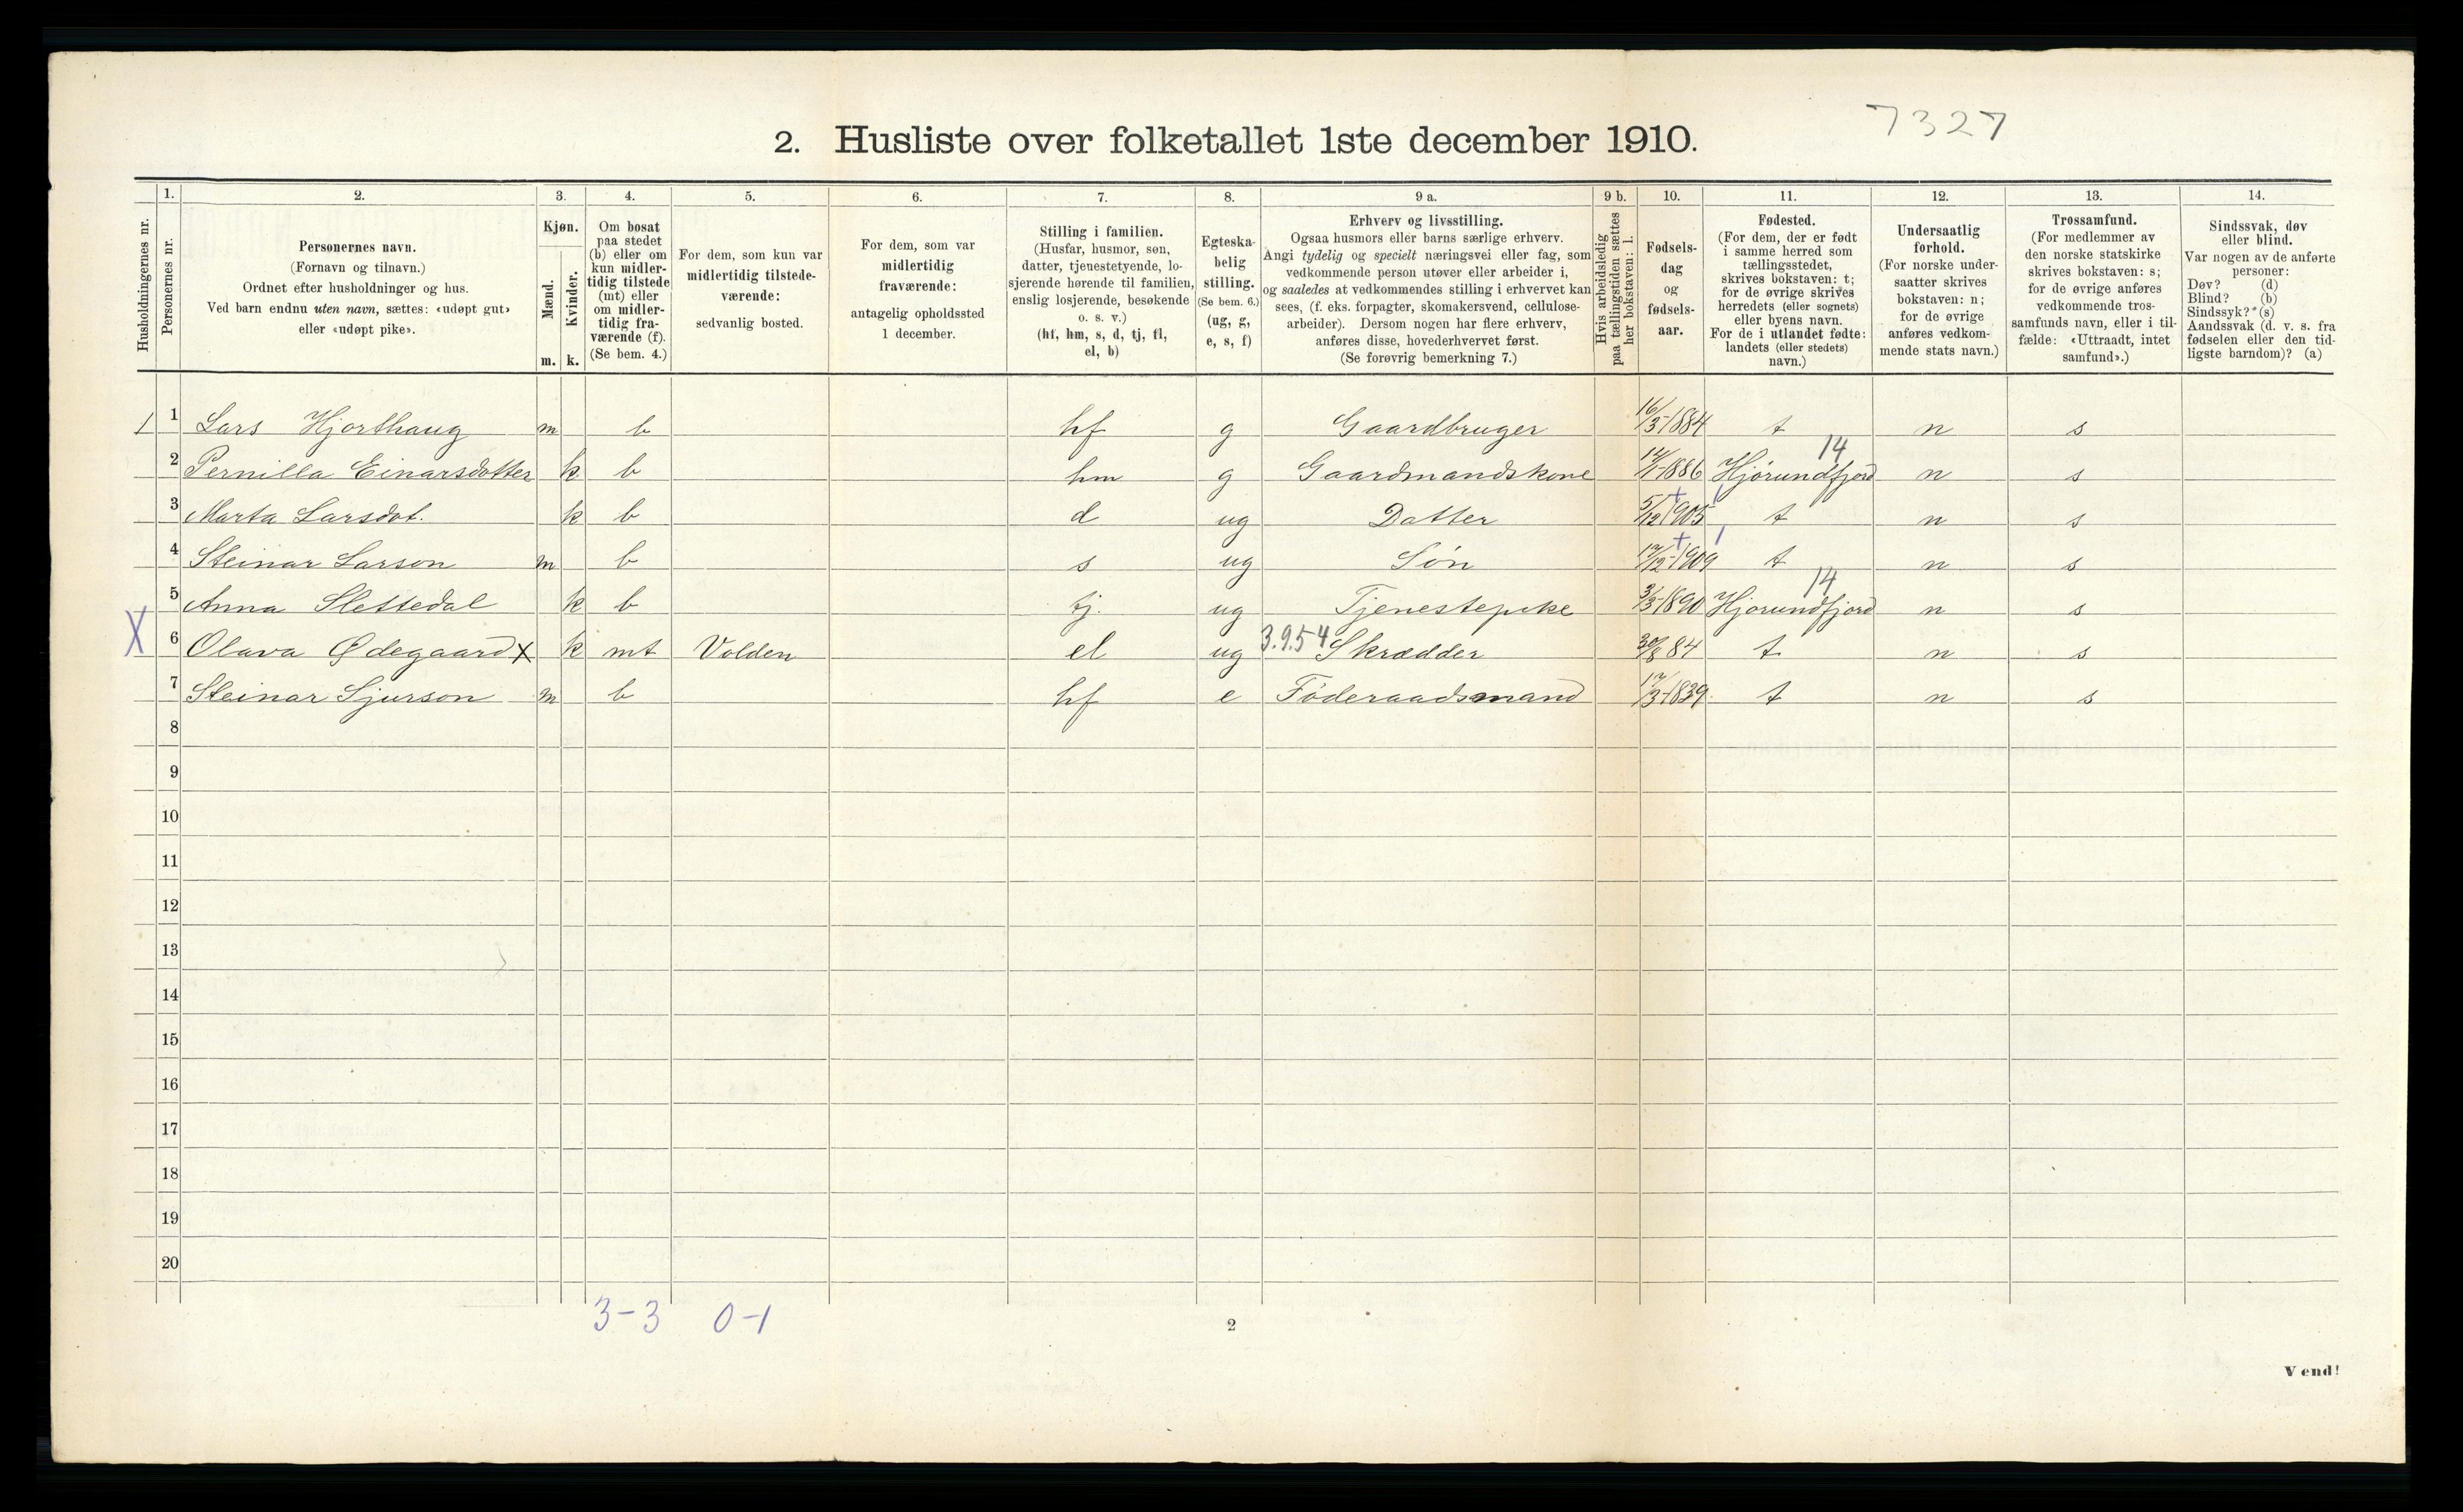 7327
2. Husliste over folketallet 1ste december 1910.
1. 2. 3. 4. 5. 6. 7. 8. 9 a. 9 b. 10. 11. 12. 13. 14.
Husholdningernes nr.
Personernes nr.
Personernes navn.
(Fornavn og tilnavn.)
Ordnet efter husholdninger og hus.
Ved barn endnu uten navn, sættes: «udøpt gut»
eller «udøpt pike».
Kjøn.
Mænd.
Kvinder.
m. k.
Om bosat
paa stedet
(b) eller om
kun midler-
tidig tilstede
(mt) eller
om midler-
tidig fra-
værende (f).
(Se bem. 4.)
For dem, som kun var
midlertidig tilstede-
værende:
sedvanlig bosted.
For dem, som var
midlertidig
fraværende:
antagelig opholdssted
1 december.
Stilling i familien.
(Husfar, husmor, søn,
datter, tjenestetyende, lo-
sjerende hørende til familien,
enslig losjerende, besøkende
o. s. v.)
(hf, hm, s, d, tj, fl,
el, b)
Egteska-
belig
stilling.
(Se bem. 6.)
(ug, g,
e, s, f)
Erhverv og livsstilling.
Ogsaa husmors eller barns særlige erhverv.
Angi tydelig og specielt næringsvei eller fag, som
vedkommende person utøver eller arbeider i,
og saaledes at vedkommendes stilling i erhvervet kan
sees, (f. eks. forpagter, skomakersvend, cellulose-
arbeider). Dersom nogen har flere erhverv,
anføres disse, hovederhvervet først.
(Se forøvrig bemerkning 7.)
Hvis arbeidsledig
paa tællingstiden sættes
her bokstaven: l.
Fødsels-
dag
og
fødsels-
aar.
Fødested.
(For dem, der er født
i samme herred som
tællingsstedet,
skrives bokstaven: t;
for de øvrige skrives
herredets (eller sognets)
eller byens navn.
For de i utlandet fødte:
landets (eller stedets)
navn.)
Undersaatlig
forhold.
(For norske under-
saatter skrives
bokstaven: n;
for de øvrige
anføres vedkom-
mende stats navn.)
Trossamfund.
(For medlemmer av
den norske statskirke
skrives bokstaven: s;
for de øvrige anføres
vedkommende tros-
samfunds navn, eller i til-
fælde: «Uttraadt, intet
samfund».)
Sindssvak, døv
eller blind.
Var nogen av de anførte
personer:
Døv? (d)
Blind? (b)
Sindssyk?* (s)
Aandssvak (d. v. s. fra
fødselen eller den tid-
ligste barndom)? (a)
1 1 Lars Hjorthaug m b hf g Gaardbruger 16/3-1884 t n s
14
2 Pernilla Einarsdotter k b hm g Gaardmandskone 14/1-1886 Hjørundfjord n s
3 Marta Larsdot. k b d ug Datter 5/12 1905 t n s
4 Steinar Larson m b s ug Søn 17/12-1909 t n s
14
5 Anna Slettedal k b tj. ug Tjenestepike 3/3-1890 Hjorundfjord n s
X 6 Olava Ødegaard X k mt Volden el ug 3.9.54 Skrædder 30/8 84 t n s
7 Steinar Sjurson m b hf e Føderaadsmand 17/3-1839 t n s
8
9
10
11
12
13
14
15
16
17
18
19
20
3-3 0-1
2
Vend!